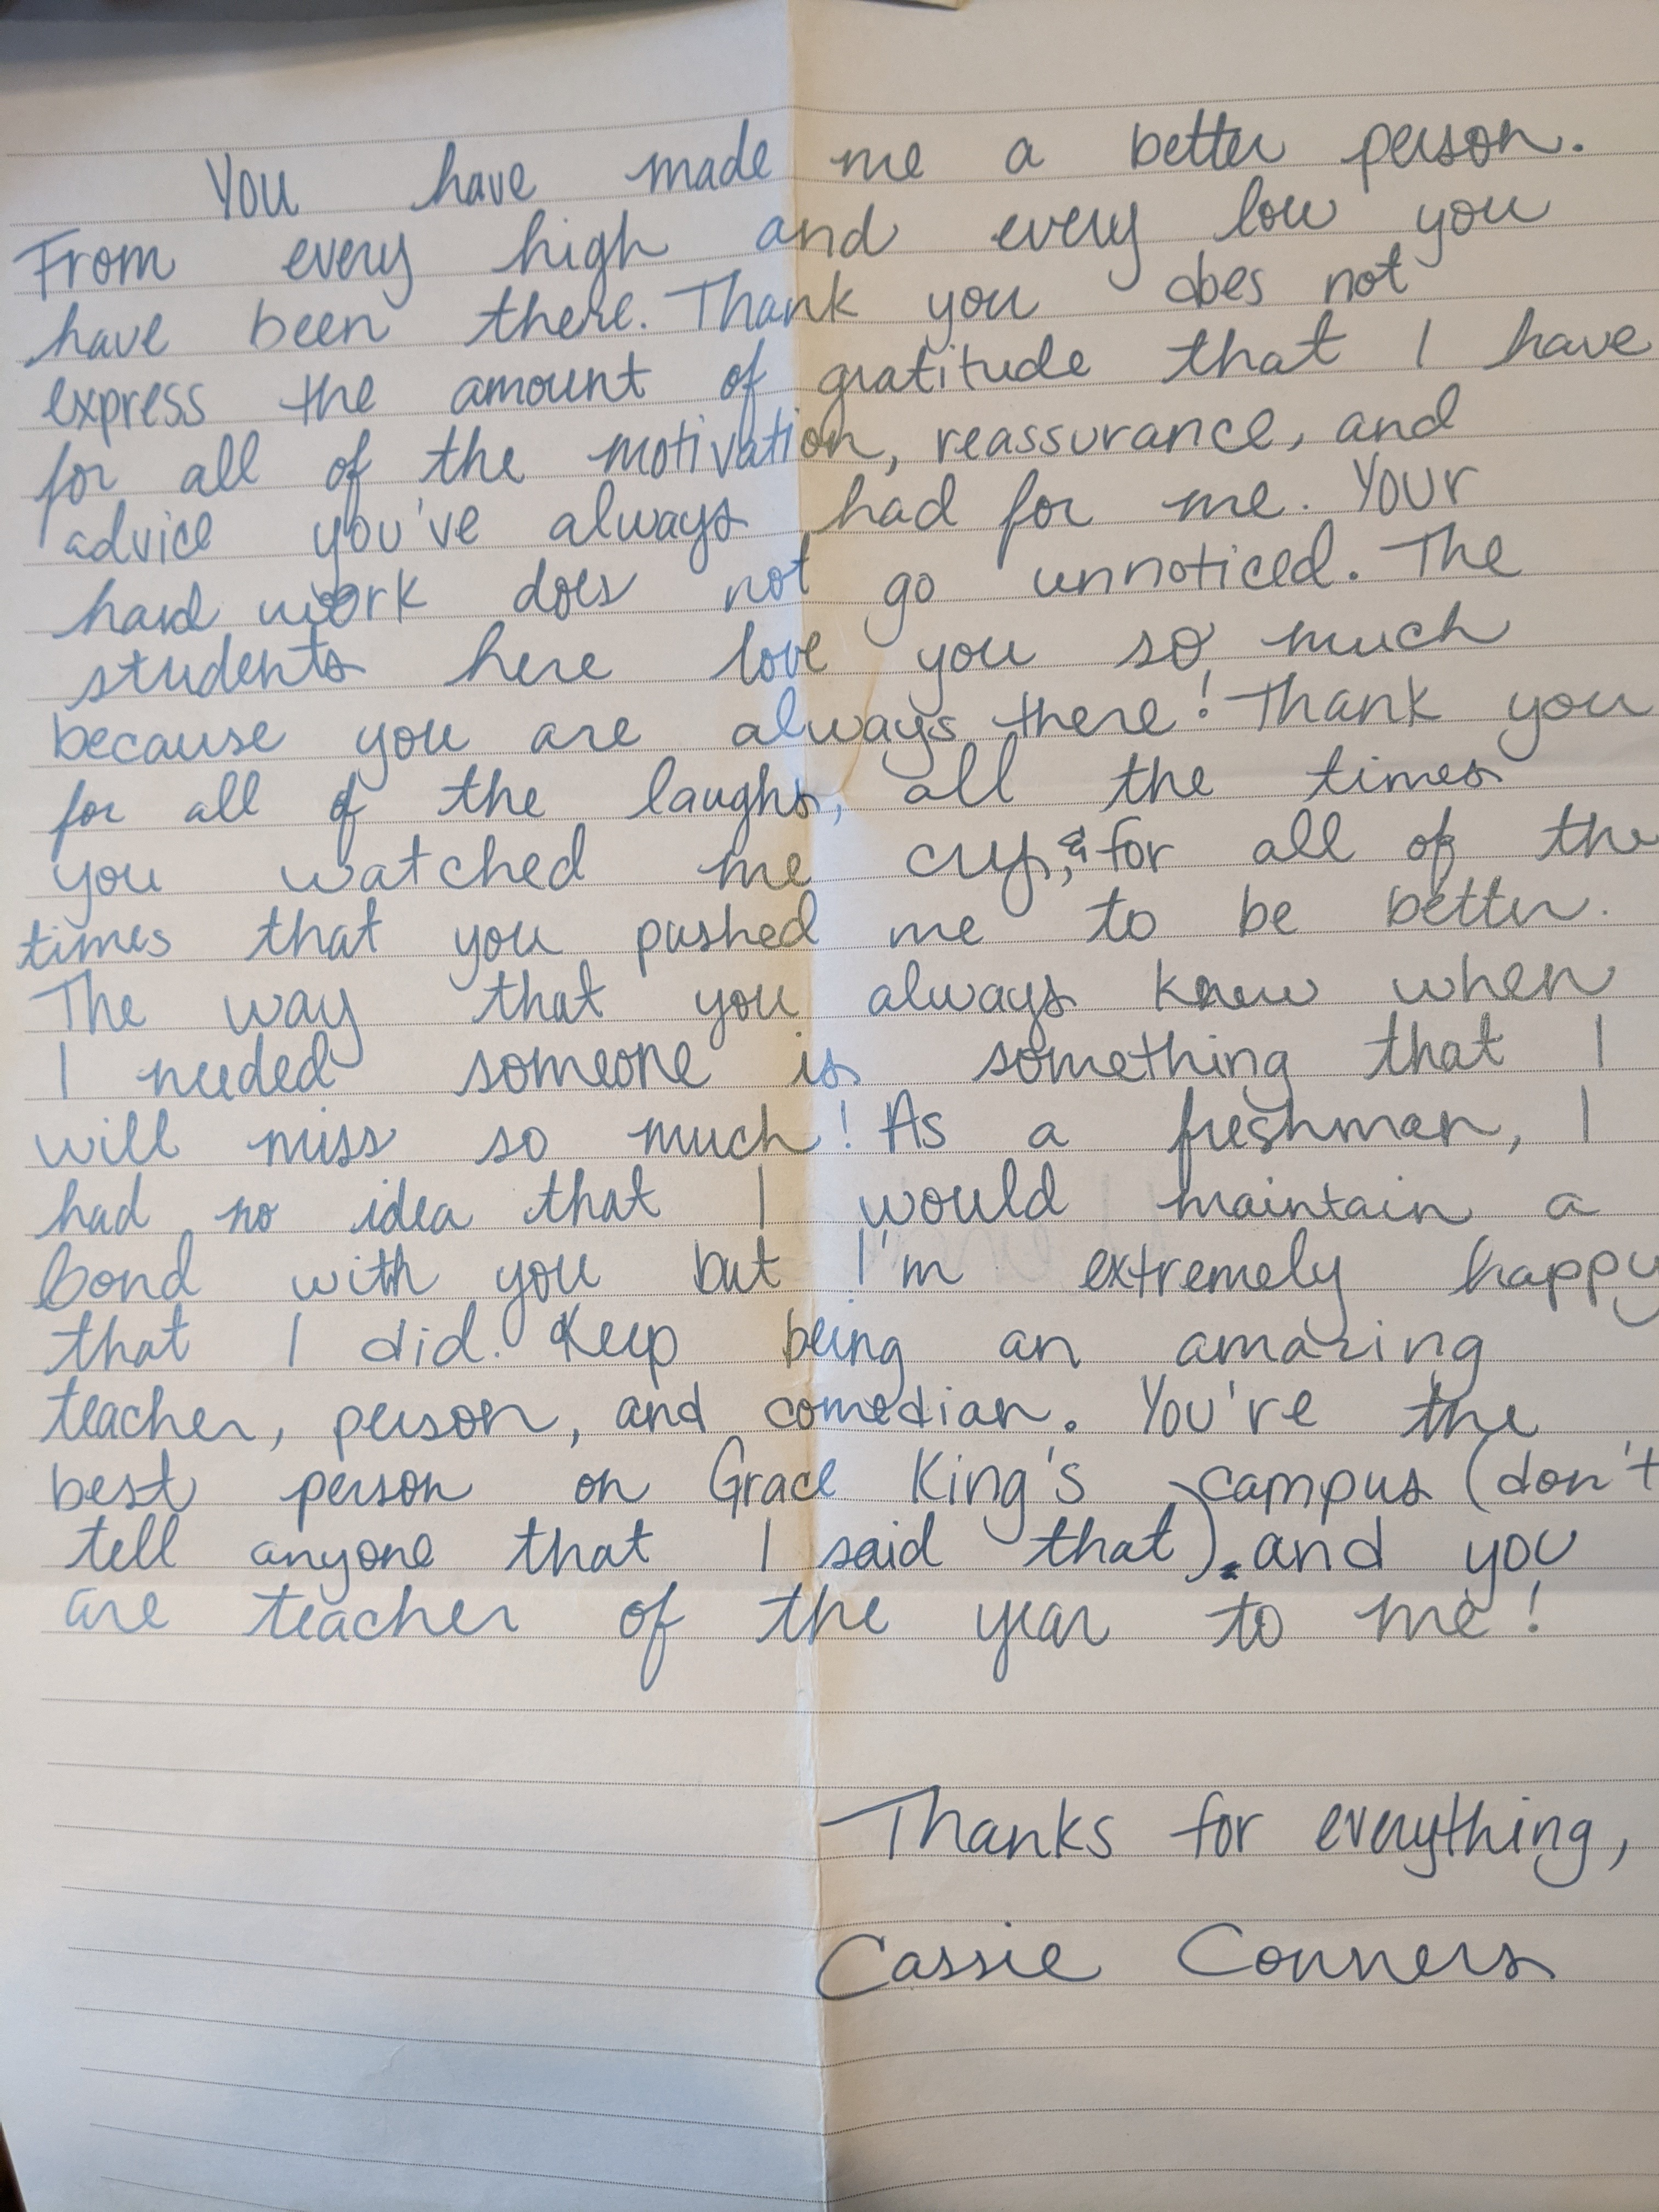 You have made me a better person.
From every high and every low you
have been there. Thank you does not
express the amount of gratitude that I have
for all of the motivation, reassurance, and
advice you've always had for me. Your
hard work does not go unnoticed. The
students here love you so much
because you are always there! Thank you
for all of the laughs, all the times
you watched me cry, & for all of the
times that you pushed me to be better.
The way that you always knew when
I needed someone is something that I
will miss so much! As a freshman, I
had no idea that I would maintain a
bond with you but I'm extremely happy
that I did. Keep being an amazing
teacher, person, and comedian. You're the
best person on Grace King's campus (don't
tell anyone that I said that). and you
are teacher of the year to me!
Thanks for everything,
Cassie Conners